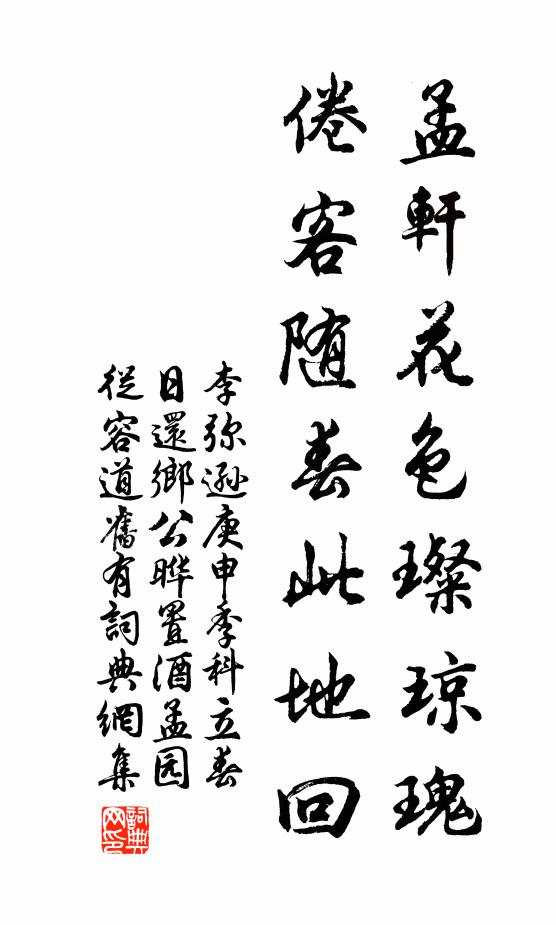 孟軒花色璨琼瑰
倦客随春此地回
李弥逊庚申季科立春
日還鄉公晔置酒孟园
從容道舊有詞典網集
詞典网印